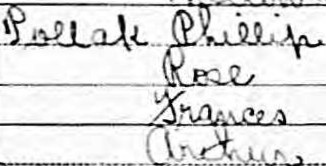 Pollak Phillip
Rose
Frances
Arthur